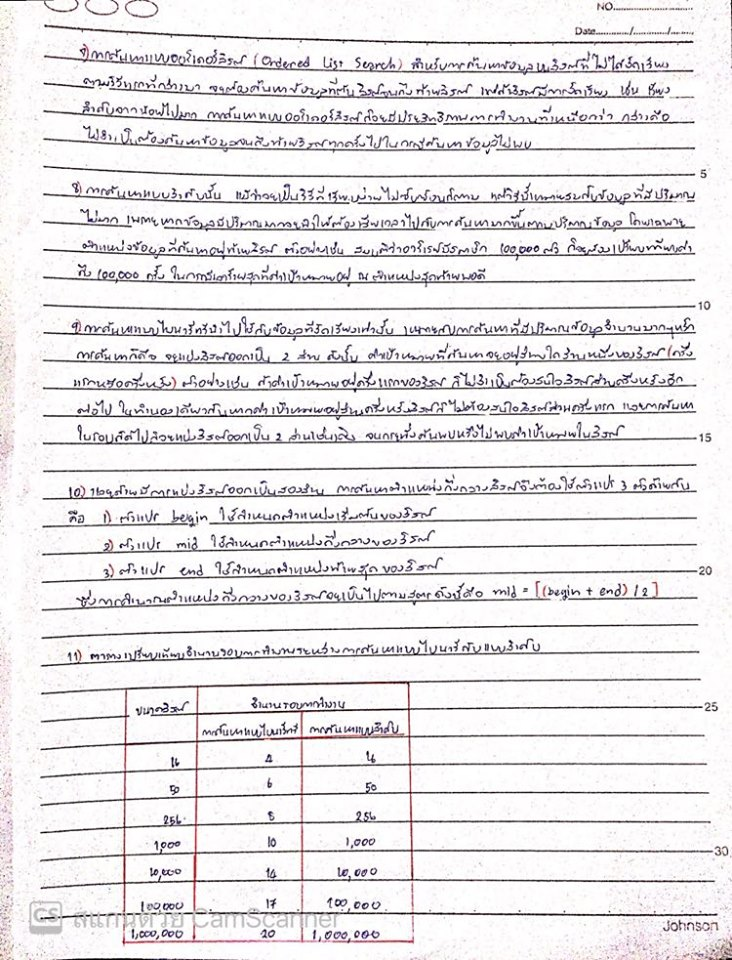 NO.
Date
7) การค้นหาแบบออร์เดอร์ลิสต์ (Ordered List Search) สำหรับการค้นหาข้อมูลบนลิสต์ที่ไม่ได้จัดเรียง
ตามวิธีแรกที่กล่าวมา จะต้องค้นหาข้อมูลที่ต้นลิสต์จนถึงท้ายลิสต์ แต่ถ้าลิสต์มีการจัดเรียง เช่น เรียง
ลำดับจากน้อยไปมาก การค้นหาแบบออร์เดอร์ลิสต์ก็จะมีประสิทธิภาพการทำงานที่เหนือกว่า กล่าวคือ
ไม่จำเป็นต้องค้นหาข้อมูลจนถึงท้ายลิสต์ทุกครั้งไปในกรณีค้นหาข้อมูลไม่พบ
5
8) การค้นหาแบบลำดับนั้น แม้ว่าจะเป็นวิธีที่เรียบง่ายไม่ซับซ้อนก็ตาม แต่วิธีนี้เหมาะสมกับข้อมูลที่มีปริมาณ
ไม่มาก เพราะหากข้อมูลมีปริมาณมากจะทำให้ต้องเสียเวลาไปกับการค้นหามากขึ้นตามปริมาณข้อมูล โดยเฉพาะ
ตำแหน่งข้อมูลที่ค้นหาอยู่ท้ายลิสต์ ตัวอย่างเช่น สมมติว่าอาร์เรย์มีสมาชิก 100,000 ตัว ก็จะต้องเปรียบเทียบค่า
ถึง 100,000 ครั้ง ในกรณีเลวร้ายสุดที่ค่าเป้าหมายอยู่ ณ ตำแหน่งสุดท้ายพอดี
10
9) การค้นหาแบบไบนารีจะนำไปใช้กับข้อมูลที่จัดเรียงเท่านั้น เหมาะกับการค้นหาที่มีปริมาณข้อมูลจำนวนมาก หลัก
การค้นหาก็คือ จะแบ่งลิสต์ออกเป็น 2 ส่วน ดังนั้น ค่าเป้าหมายที่ค้นหาจะอยู่ส่วนใดส่วนหนึ่งของลิสต์ (ครึ่ง
แรกหรือครึ่งหลัง) ตัวอย่างเช่น ถ้าค่าเป้าหมายอยู่ครึ่งแรกของลิสต์ ก็ไม่จำเป็นต้องสนใจลิสต์ส่วนครึ่งหลังอีก
ต่อไป ในทำนองเดียวกันหากค่าเป้าหมายอยู่ส่วนครึ่งหลังลิสต์ก็ไม่ต้องสนใจลิสต์ส่วนครึ่งแรก และการค้นหา
ในรอบถัดไปก็จะแบ่งลิสต์ออกเป็น 2 ส่วนเช่นเดิม จนกระทั่งค้นพบหรือไม่พบค่าเป้าหมายในลิสต์
15
10) ด้วยการแบ่งลิสต์ออกเป็นสองส่วน การค้นหาตำแหน่งกึ่งกลางลิสต์จึงต้องใช้ตัวแปร 3 ตัวด้วยกัน
คือ 1) ตัวแปร begin ใช้กำหนดตำแหน่งเริ่มต้นของลิสต์
2) ตัวแปร mid ใช้กำหนดตำแหน่งกึ่งกลางของลิสต์
3) ตัวแปร end ใช้กำหนดตำแหน่งท้ายสุดของลิสต์
20
ซึ่งการคำนวณตำแหน่งกึ่งกลางของลิสต์จะเป็นไปตามสูตรดังนี้คือ mid = [(begin + end) / 2]
11) ตารางเปรียบเทียบจำนวนรอบการทำงานระหว่างการค้นหาแบบไบนารีกับแบบลำดับ
ขนาดลิสต์ จำนวนรอบการทำงาน
25
การค้นหาแบบไบนารี การค้นหาแบบลำดับ
16 4 16
50 6 50
256 8 256
1,000 10 1,000
30
10,000 14 10,000
100,000 17 100,000
CS สแกนด้วย CamScanner
Johnson
1,000,000 20 1,000,000